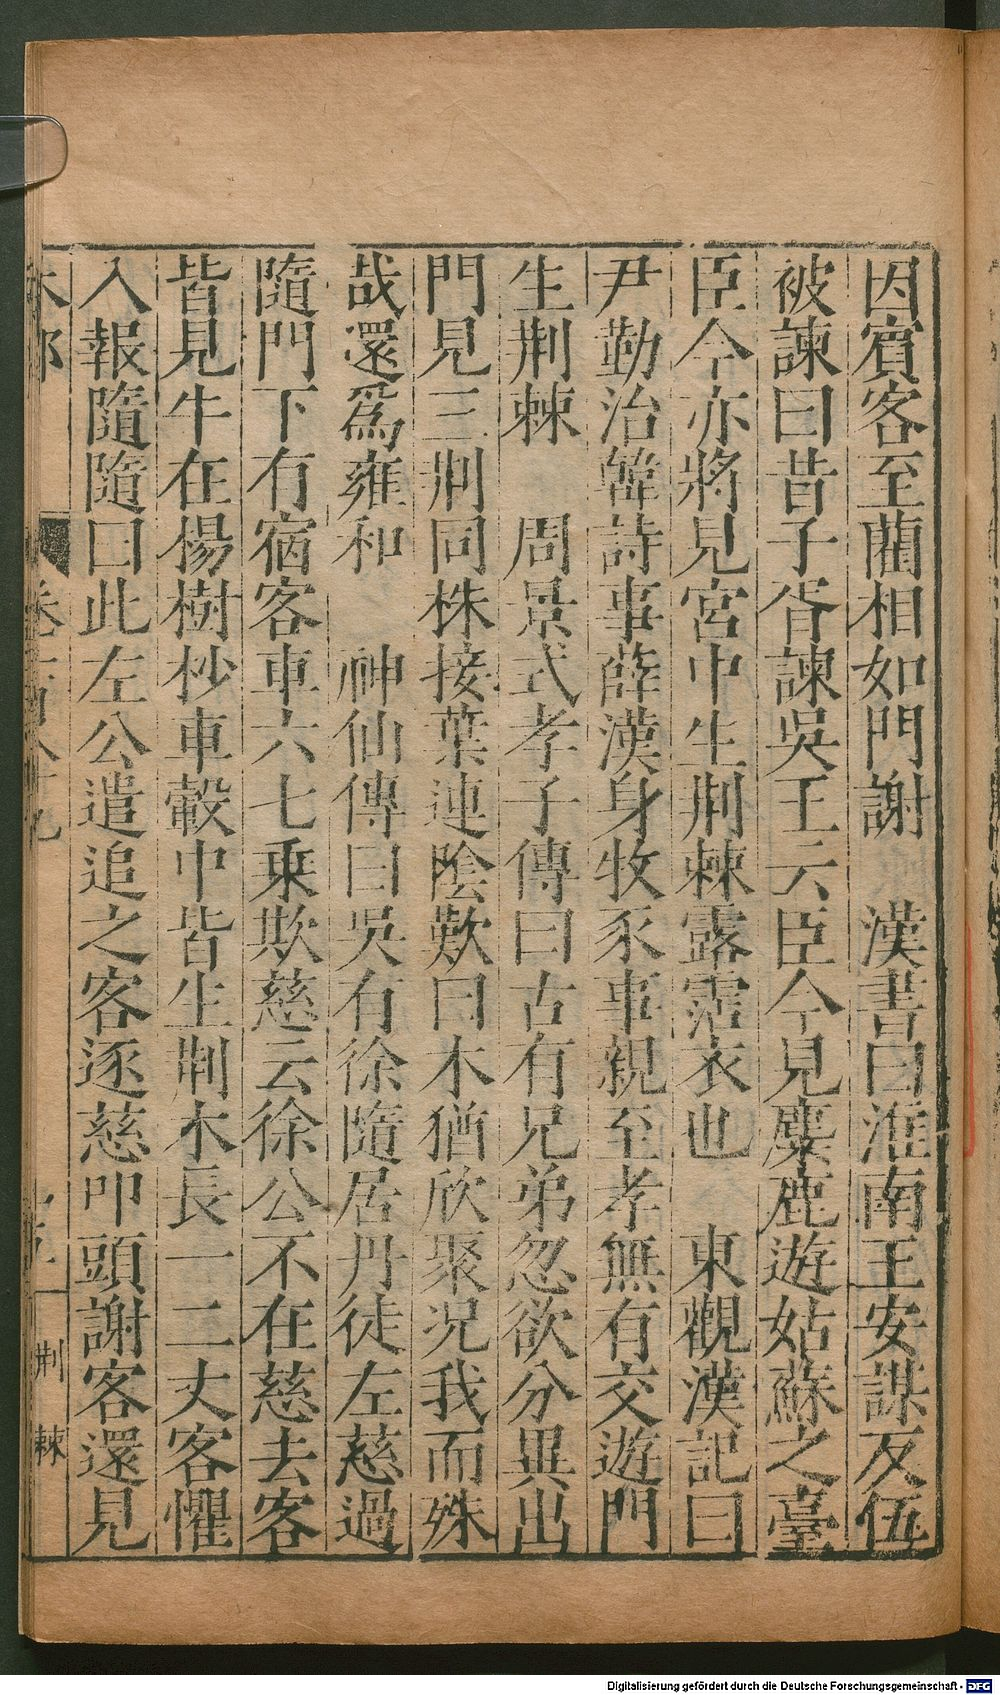 因賓客至藺相如門謝　漢書曰淮南王安謀反伍
被諫曰昔子胥諫吳王云臣今見麋鹿遊姑蘇之臺
臣今亦將見宮中生荆棘露霑衣也　東觀漢記曰
尹勤治韓詩事薛漢身牧豕事親至孝無有交遊門
生荆棘　周景式孝子傳曰古有兄弟忽欲分異出
門見三荆同株接葉連陰歎曰木猶欣聚况我而殊
哉還爲雍和　神仙傳曰吳有徐隨居丹徒左慈過
隨門下有宿客車六七乗欺慈云徐公不在慈去客
皆見牛在楊樹杪車轂中皆生荆木長一二丈客懼
入報隨隨曰此左公遣追之客逐慈叩頭謝客還見
木部　卷　荆棘
Digitalisierung gefördert durch die Deutsche Forschungsgemeinschaft - DFG